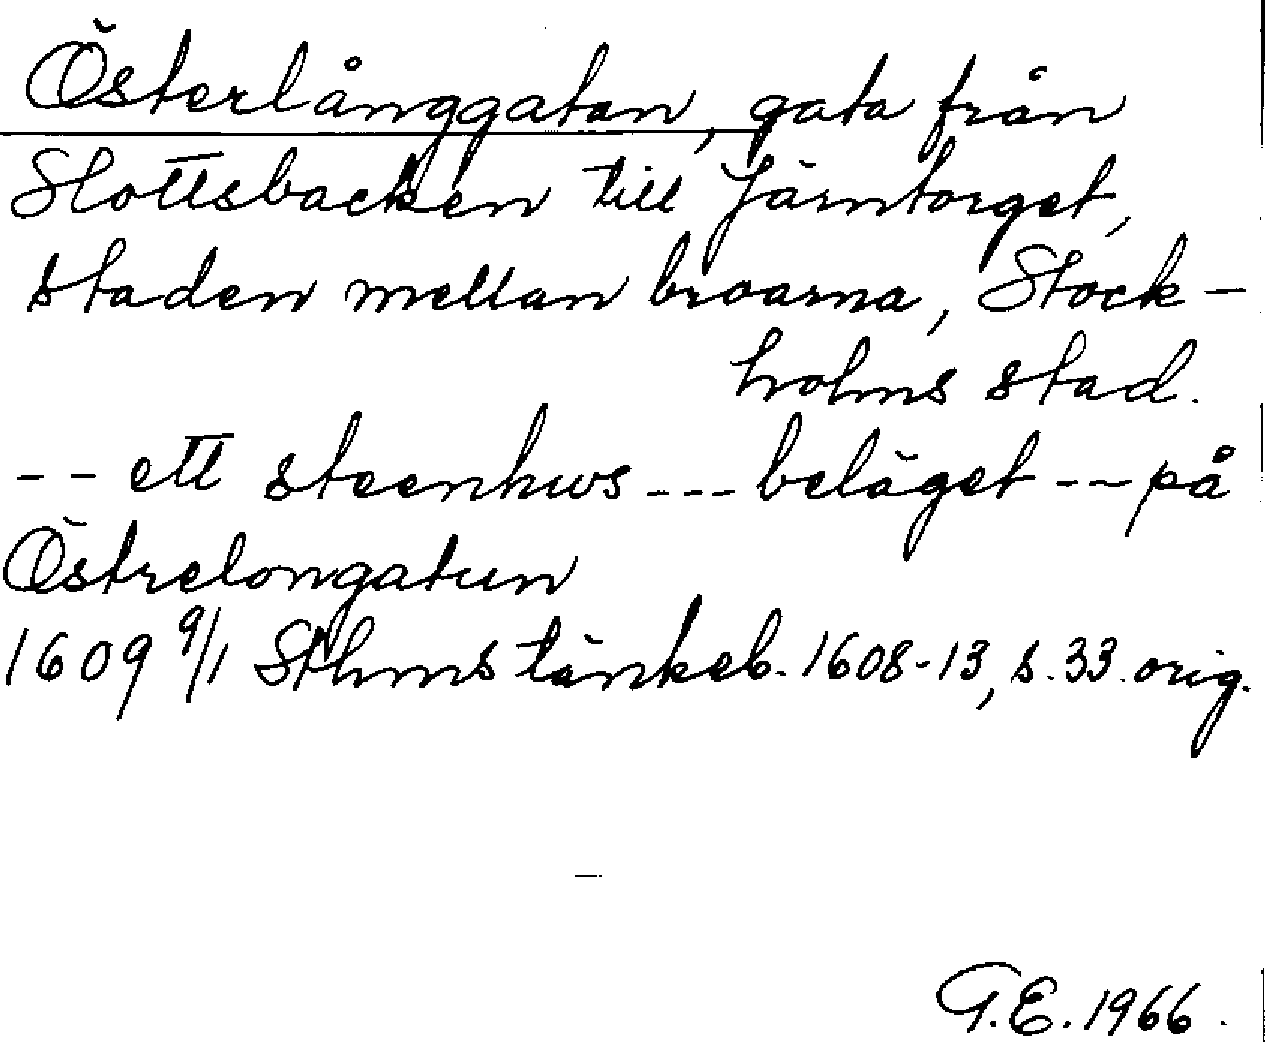 Österlånggatan, gata från
Slottsbacken till Järntorget,
staden mellan broarna, Stock-
holms stad.
-- ett steenhws --- beläget -- på
Östrelongatun
1609 9/1 Sthms tänkeb. 1608-13, s. 33. orig.
G.E. 1966.